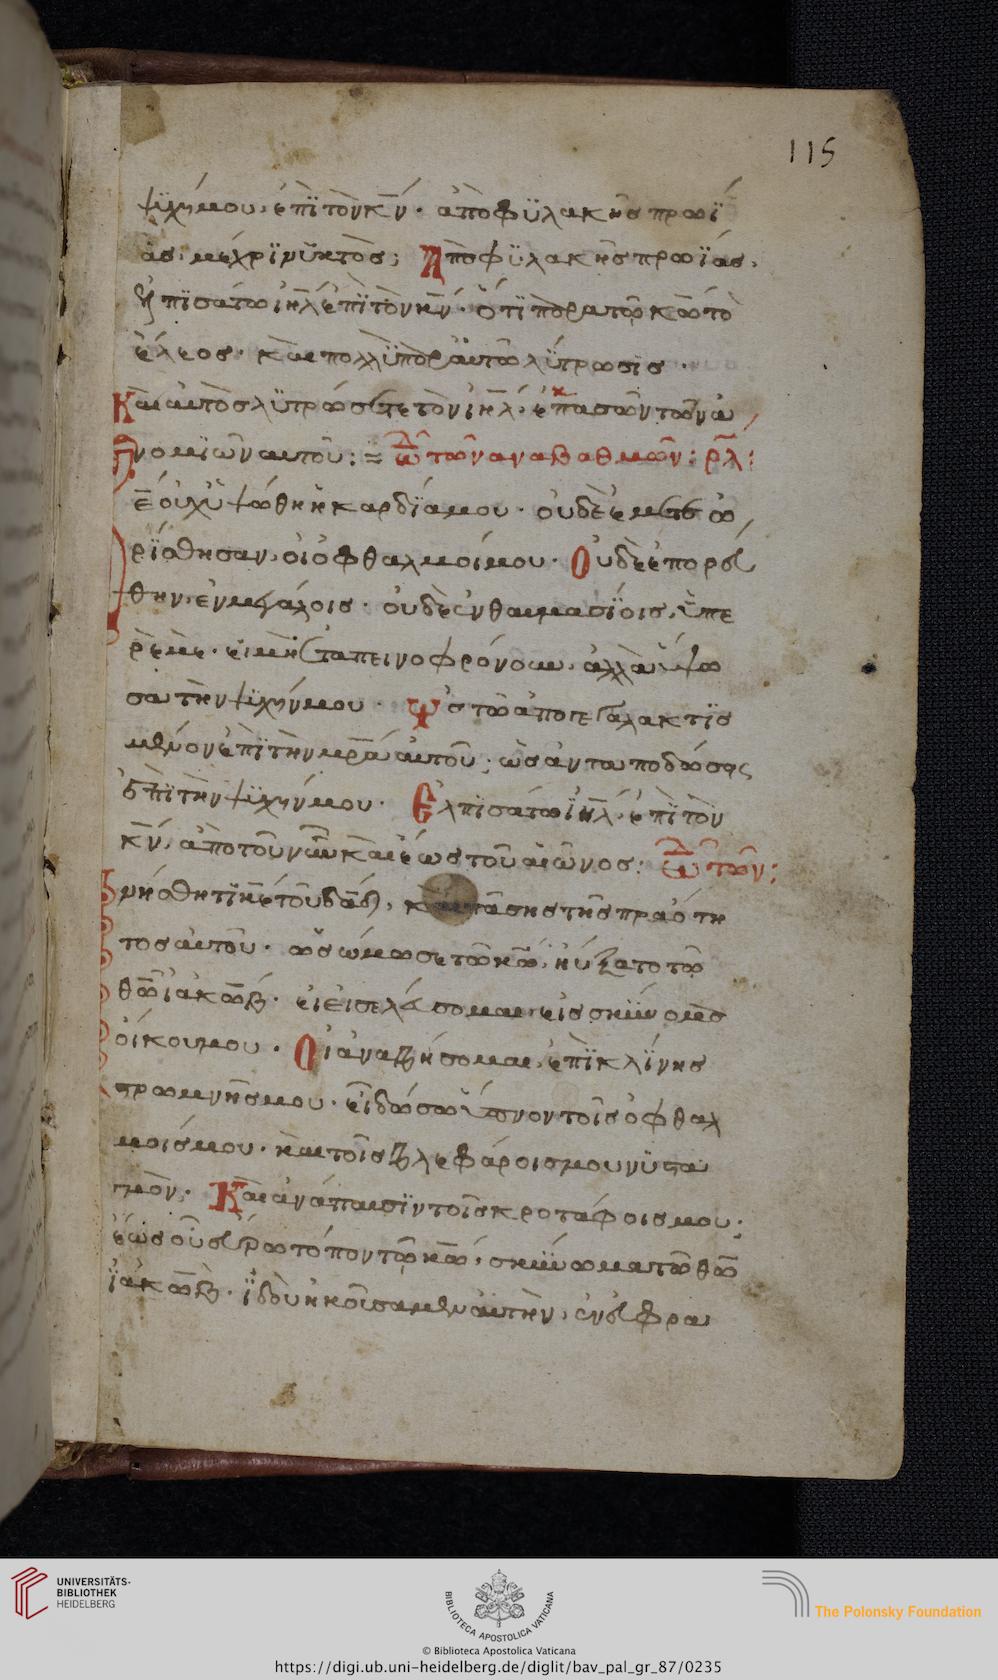 115
ψϋχήμου, ἐπῒ τὸν κν̅· ἀπὸ φϋλακῆς πρωΐ
ὰς, μέχρϊ νϋκτὸς; Ἀπὸ φϋλακῆς πρωΐας,
ἐλπϊσάτω ιη̅λ ἐπῒ τὸν κν̅· ὅτϊ παρα τῶ κω̅ τὸ
ἔλεος· καὶ πολλῒ παρ αὐτῶ λΰτρωσις·
Καὶ αὐτὸς λϋτρώσεται τὸν ιη̅λ, ἐκ πασῶν τῶν ἀ
νομϊῶν αυτοῦ: ᾠδὴ τῶν αναβαθμῶν: ρλ:
κε̅ οὐχ ὑψώθη ἡ καρδΐα μου· οὐδὲ ἐμετεω
ρΐσθησαν, οἱ ὀφθαλμοί μου· Οὐδὲ ἐπορεύ
θην, ἐν μεγάλοις· οὐδὲ ἐν θαυμασΐοις, ὑπὲ
ρ ἐμὲ· εἰ μὴ ἐταπεινοφρόνουν, ἀλλὰ ὕψω
σα τὴν ψϋχήν μου· Ὡς τὸ ἀπογεγαλακτϊσ
μένον ἐπῒ τὴν μρ̅α αὐτοῦ; ὡς ἀνταποδώσεις
ἐπῒ τὴν ψϋχήν μου· Ἐλπϊσάτω ιη̅λ, ἐπῒ τὸν
κν̅, ἀπὸ τοῦ νῦν καὶ ἕως τοῦ αἰῶνος: ᾠδὴ τῶν:
μνήσθητϊ κε̅ τοῦ δα̅δ, καὶ πάσης τῆς πραότη
τος αὐτοῦ· ὡς ὤμωσε τῶ κω̅, ηὔξατο τῶ
θω̅ ϊακώβ· εἰ εἰσελεύσομαι εἰς σκήνωμα
οἴκου μου· Εἰ ἀναβήσομαι, ἐπῒ κλΐνης
στρωμνῆς μου· εἰ δώσω ὕπνον τοῖς ὀφθαλ
μοῖς μου· καὶ τοῖς βλεφάροις μου νϋστα
γμὸν; Καὶ ἀνάπαυσϊν τοῖς κροτάφοις μου;
ἕως οὗ εὕρω τόπον τῶ κω̅, σκήνωμα τῶ θω̅
ϊακώβ· ἰδοὺ ἠκούσαμεν αὐτὴν, ἐν εὐφρα
UNIVERSITÄTS-
BIBLIOTHEK
HEIDELBERG
BIBLIOTECA APOSTOLICA VATICANA
The Polonsky Foundation
© Biblioteca Apostolica Vaticana
https://digi.ub.uni-heidelberg.de/diglit/bav_pal_gr_87/0235